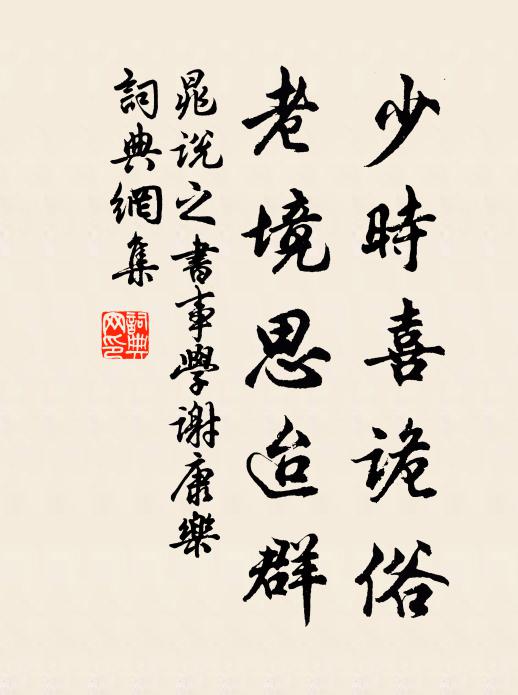 少時喜詭俗
老境思迨群
晁説之書事學谢康樂
詞典網集
詞典網印